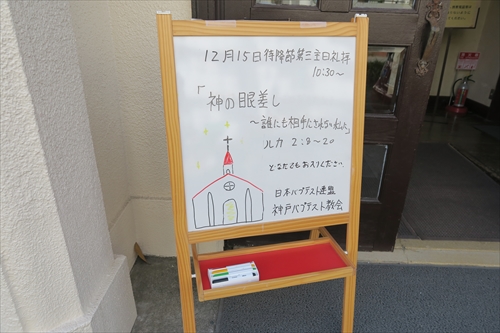 12月15日待降節第三主日礼拝
10:30〜
「神の眼差し
〜誰にも相手にされない私に」
ルカ 2:8〜20
どなたでもお入りください。
日本バプテスト連盟
神戸バプテスト教会